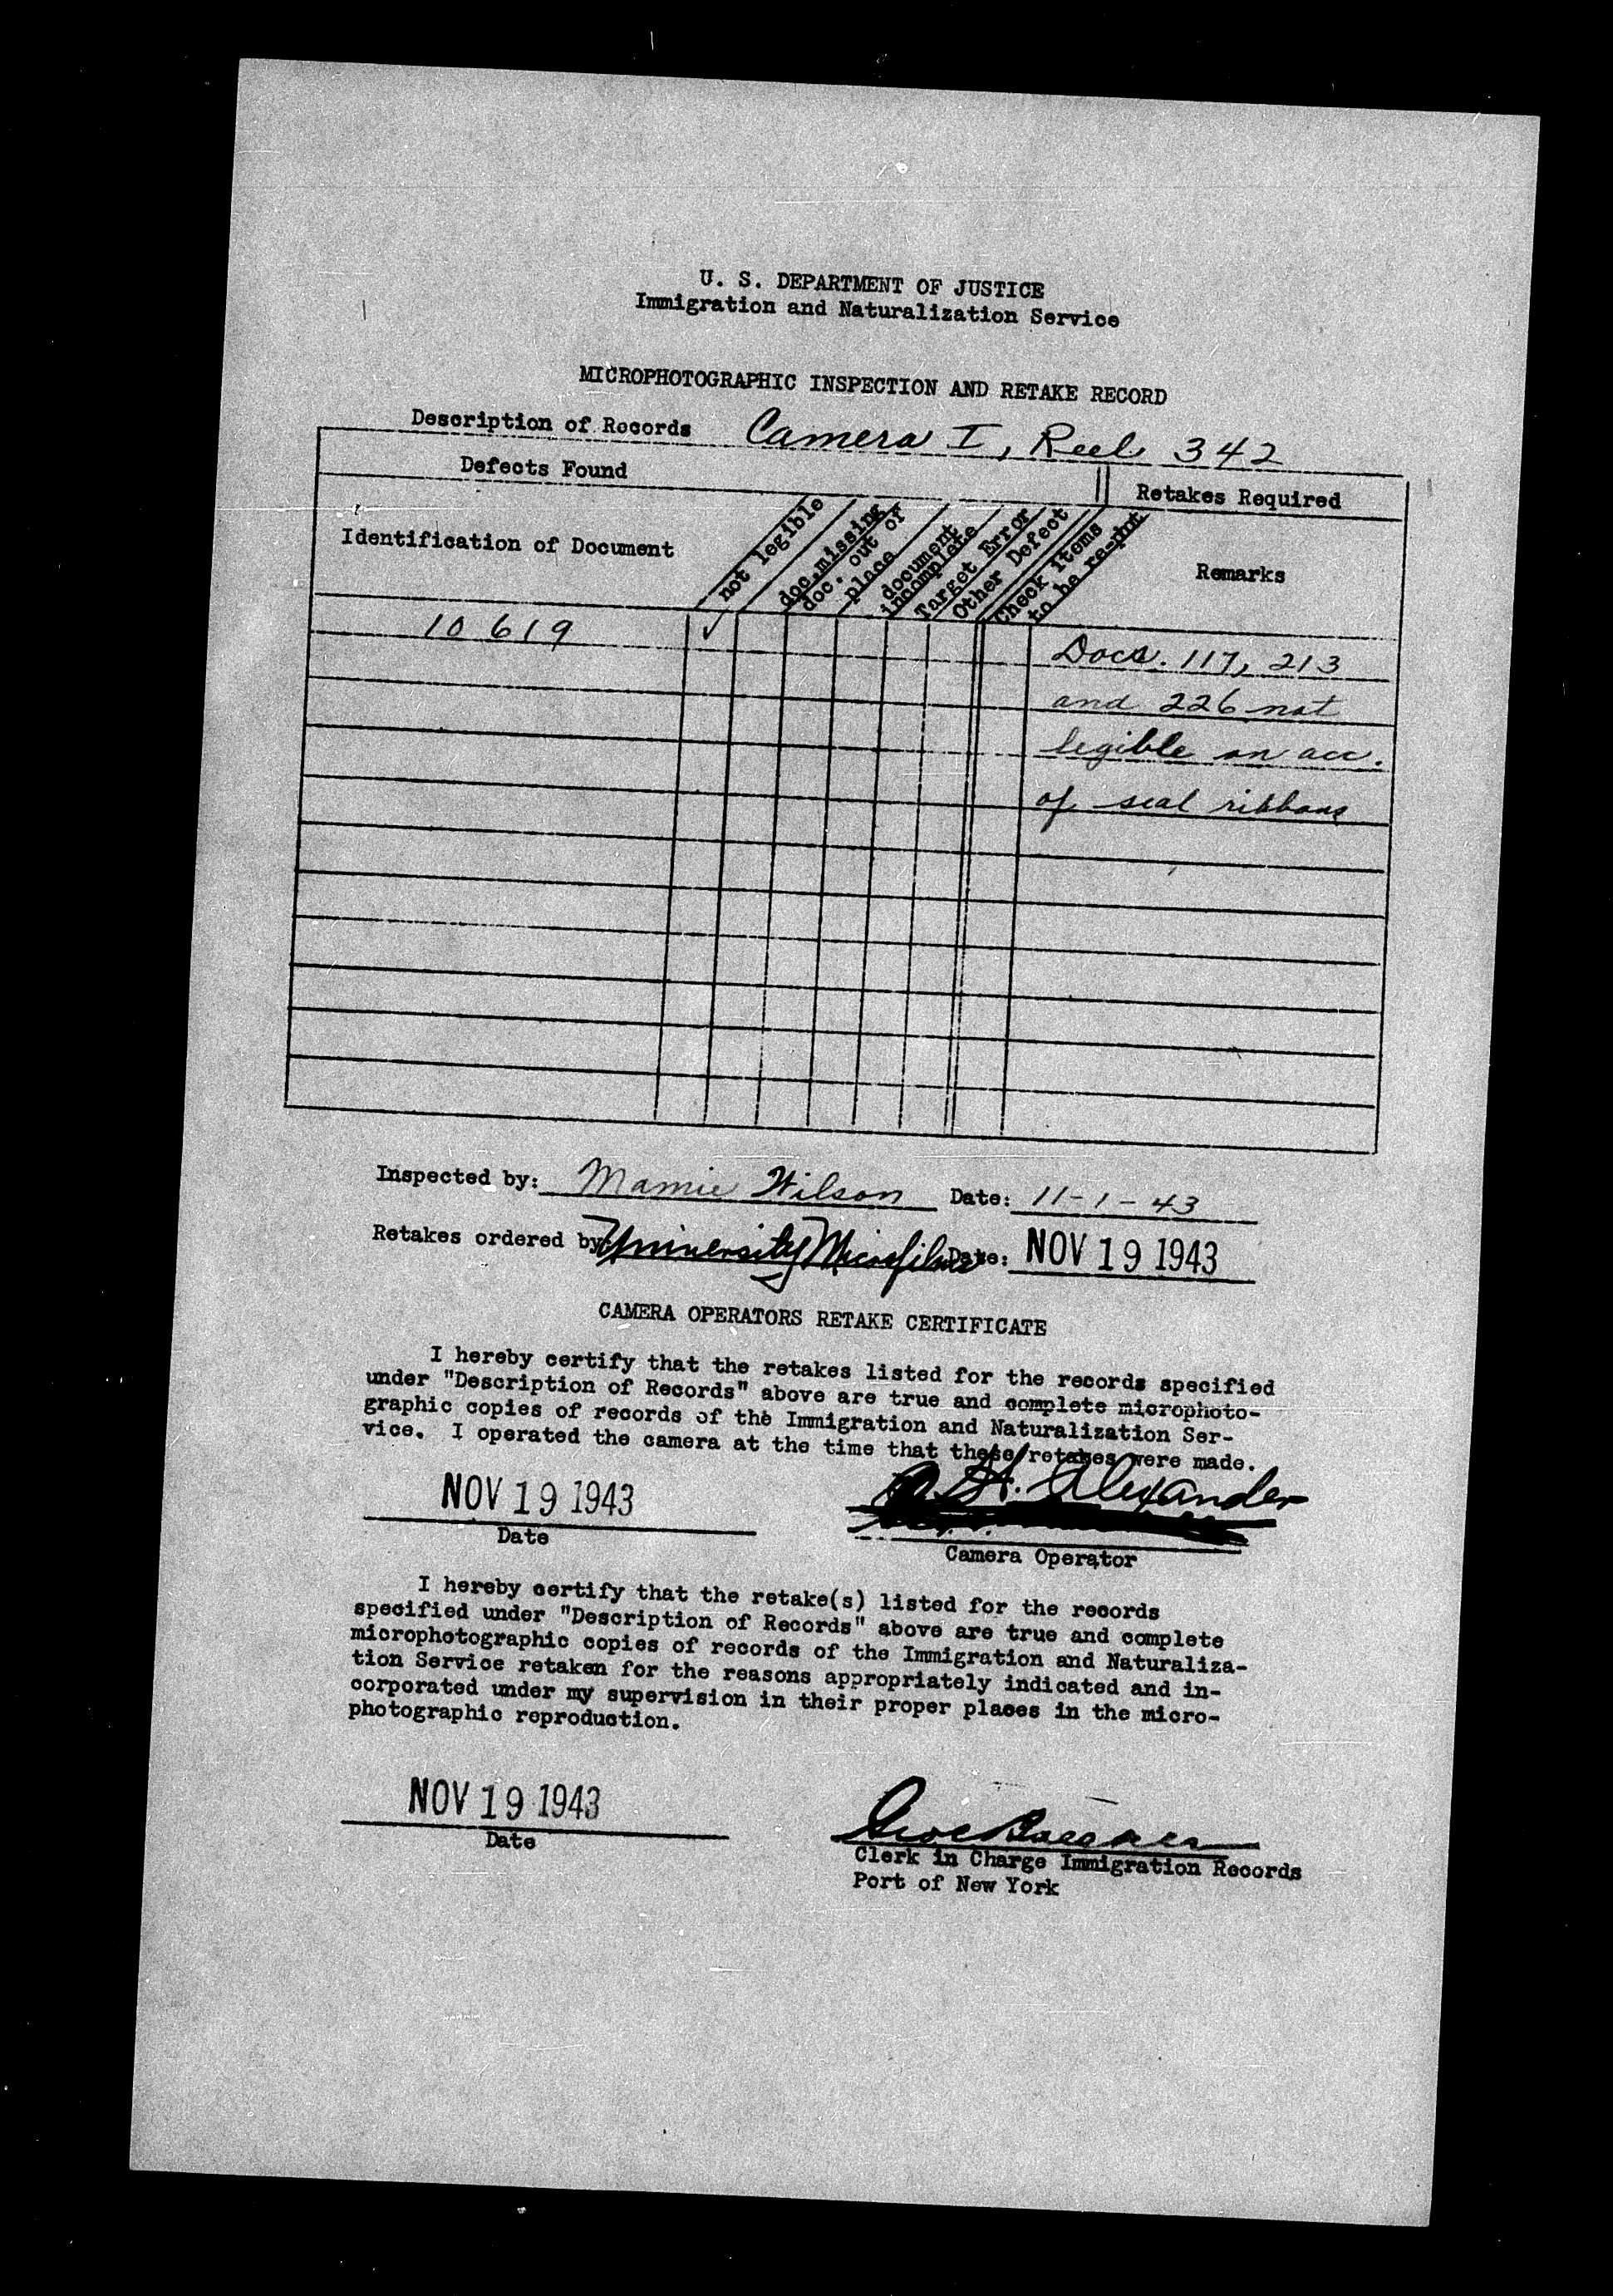 U. S. DEPARTMENT OF JUSTICE
Immigration and Naturalization Service
MICROPHOTOGRAPHIC INSPECTION AND RETAKE RECORD
Description of Records Camera I, Reel 342
Defects Found
Retakes Required
Identification of Document
not legible
doc. missing
doc. out of
place
document
incomplete
Target Error
Other Defect
Check items
to be re-phot
Remarks
10 619 ✓ Docs. 117, 213
and 226 not
legible on acc.
of seal ribbons
Inspected by: Mamie Wilson Date: 11-1-43
Retakes ordered by: University Microfilms Date: NOV 19 1943
CAMERA OPERATORS RETAKE CERTIFICATE
I hereby certify that the retakes listed for the records specified
under "Description of Records" above are true and complete microphoto-
graphic copies of records of the Immigration and Naturalization Ser-
vice. I operated the camera at the time that these retakes were made.
NOV 19 1943
H. Alexander
Date
Camera Operator
I hereby certify that the retake(s) listed for the records
specified under "Description of Records" above are true and complete
microphotographic copies of records of the Immigration and Naturaliza-
tion Service retaken for the reasons appropriately indicated and in-
corporated under my supervision in their proper places in the micro-
photographic reproduction.
NOV 19 1943
Date
Clerk in Charge Immigration Records
Port of New York